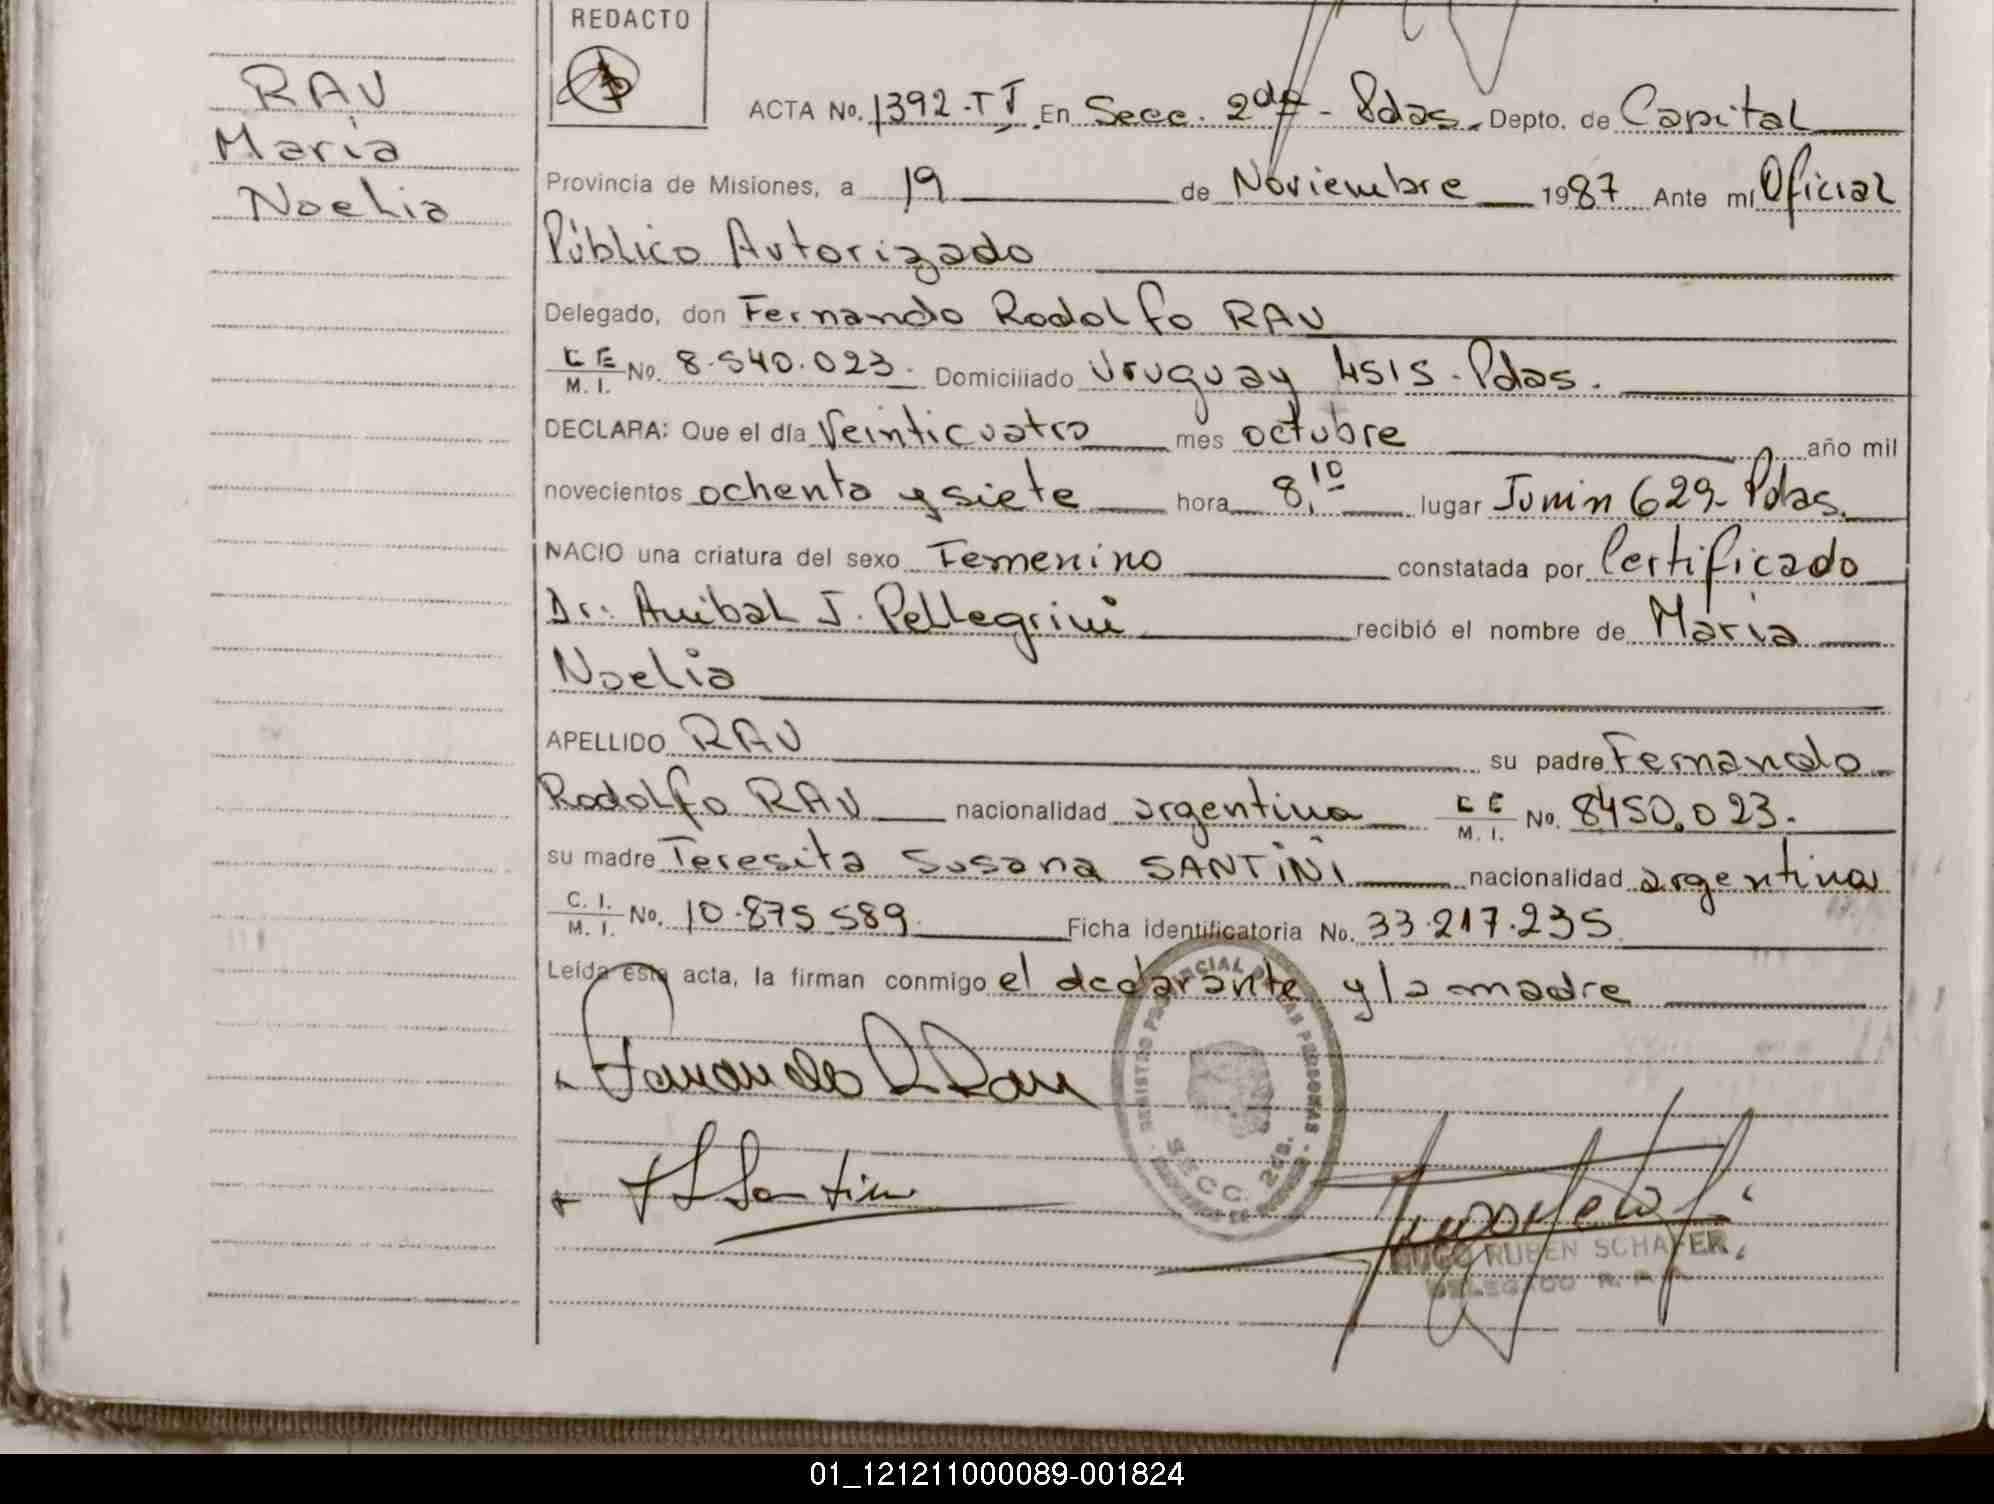 REDACTO
RAU
María
Noelia
ACTA No. 1392-TJ. En Secc. 2da - Pdas. Depto. de Capital
Provincia de Misiones, a 19 de Noviembre 1987 Ante mí Oficial
Público Autorizado
Delegado, don Fernando Rodolfo RAU
L E / M. I. No. 8.540.023. Domiciliado Uruguay 4515-Pdas.
DECLARA: Que el día Veinticuatro mes octubre año mil
novecientos ochenta y siete hora 8,10 lugar Junin 629-Pdas.
NACIO una criatura del sexo Femenino constatada por Certificado
Dr: Anibal J. Pellegrini recibió el nombre de María
Noelia
APELLIDO RAU su padre Fernando
Rodolfo RAU nacionalidad argentina L E / M. I. No. 8450.023.
su madre Teresita Susana SANTINI nacionalidad argentina
C. I. / M. I. No. 10.875.589 Ficha identificatoria No. 33.217.235
Leída esta acta, la firman conmigo el declarante y la madre
Fernando R Rau
REGISTRO PROVINCIAL DE LAS PERSONAS
SECC. 2da.
T S Santini
HUGO RUBEN SCHAFER
DELEGADO R. P. P.
01_121211000089-001824